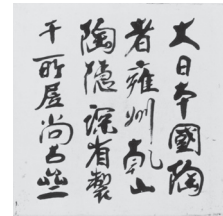 大日本國陶
者雍州乾山
陶隠深省製
于所居尚古斎